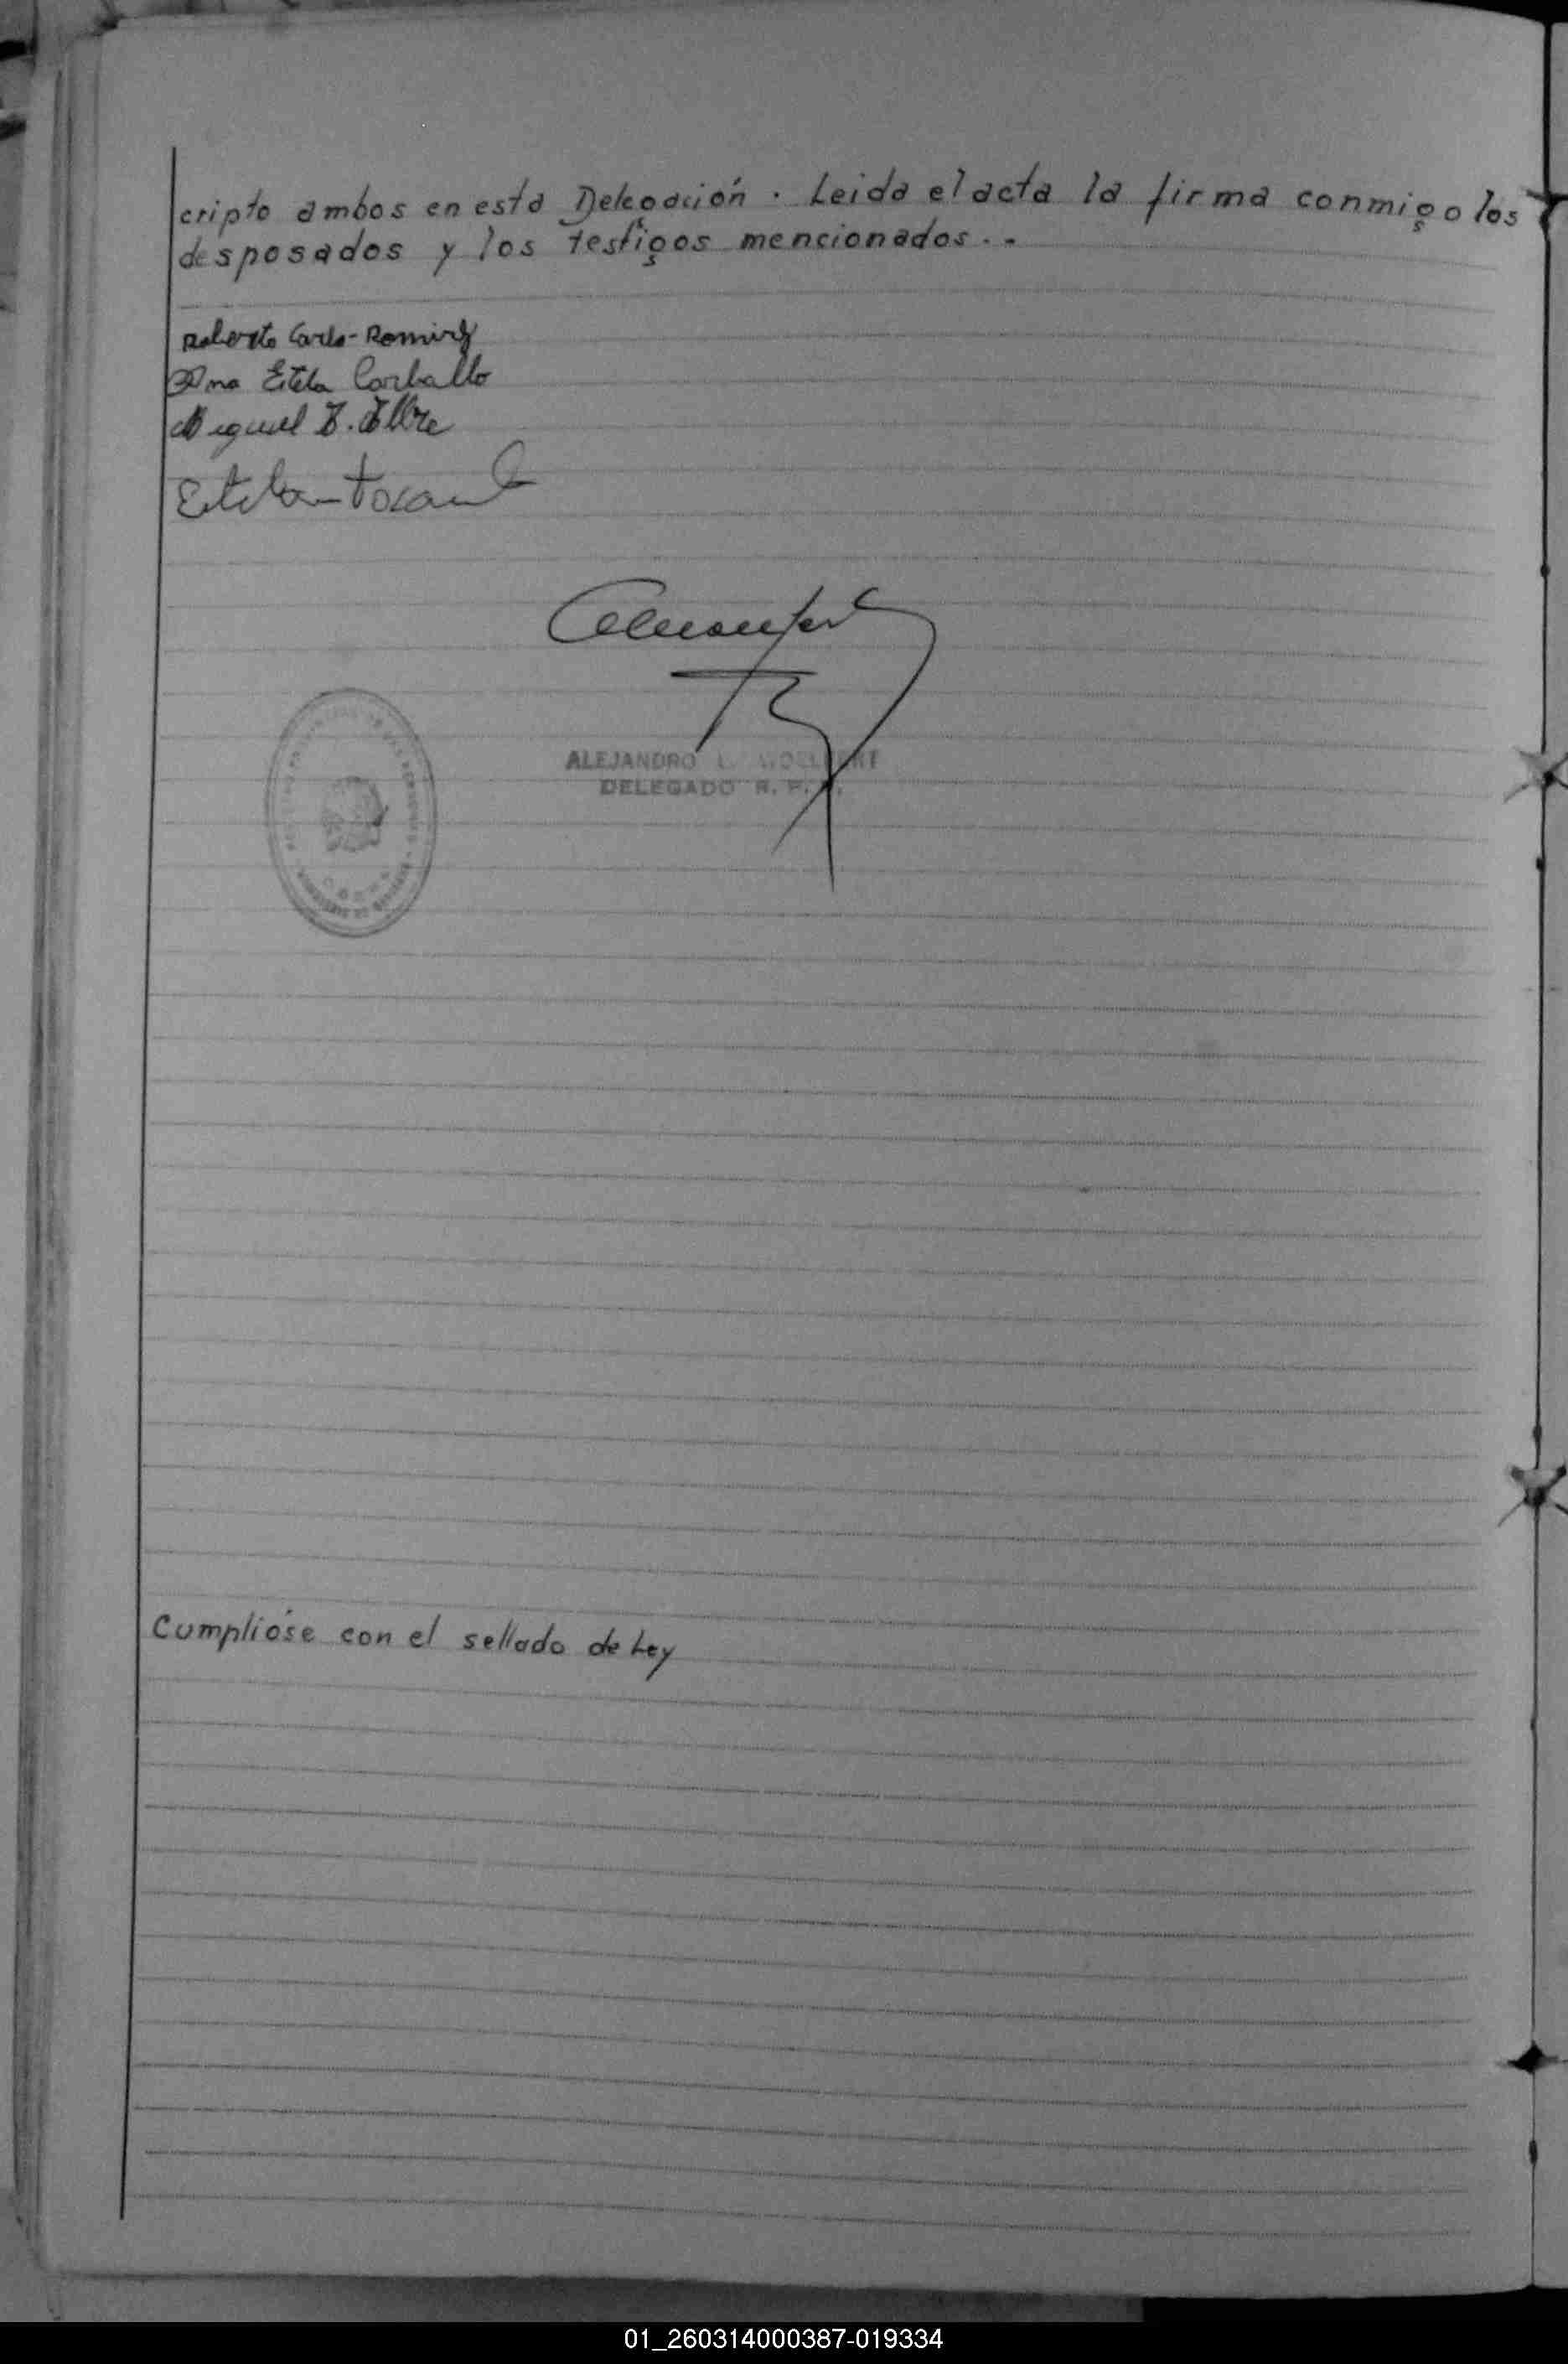 cripto ambos en esta Delegación. Leida el acta la firma conmigo los
desposados y los testigos mencionados..
Roberto Carlo Ramirez
Ana Estela Carballo
Miguel
Esteban
ALEJANDRO
DELEGADO R. P.
Cumplióse con el sellado de Ley
01_260314000387-019334